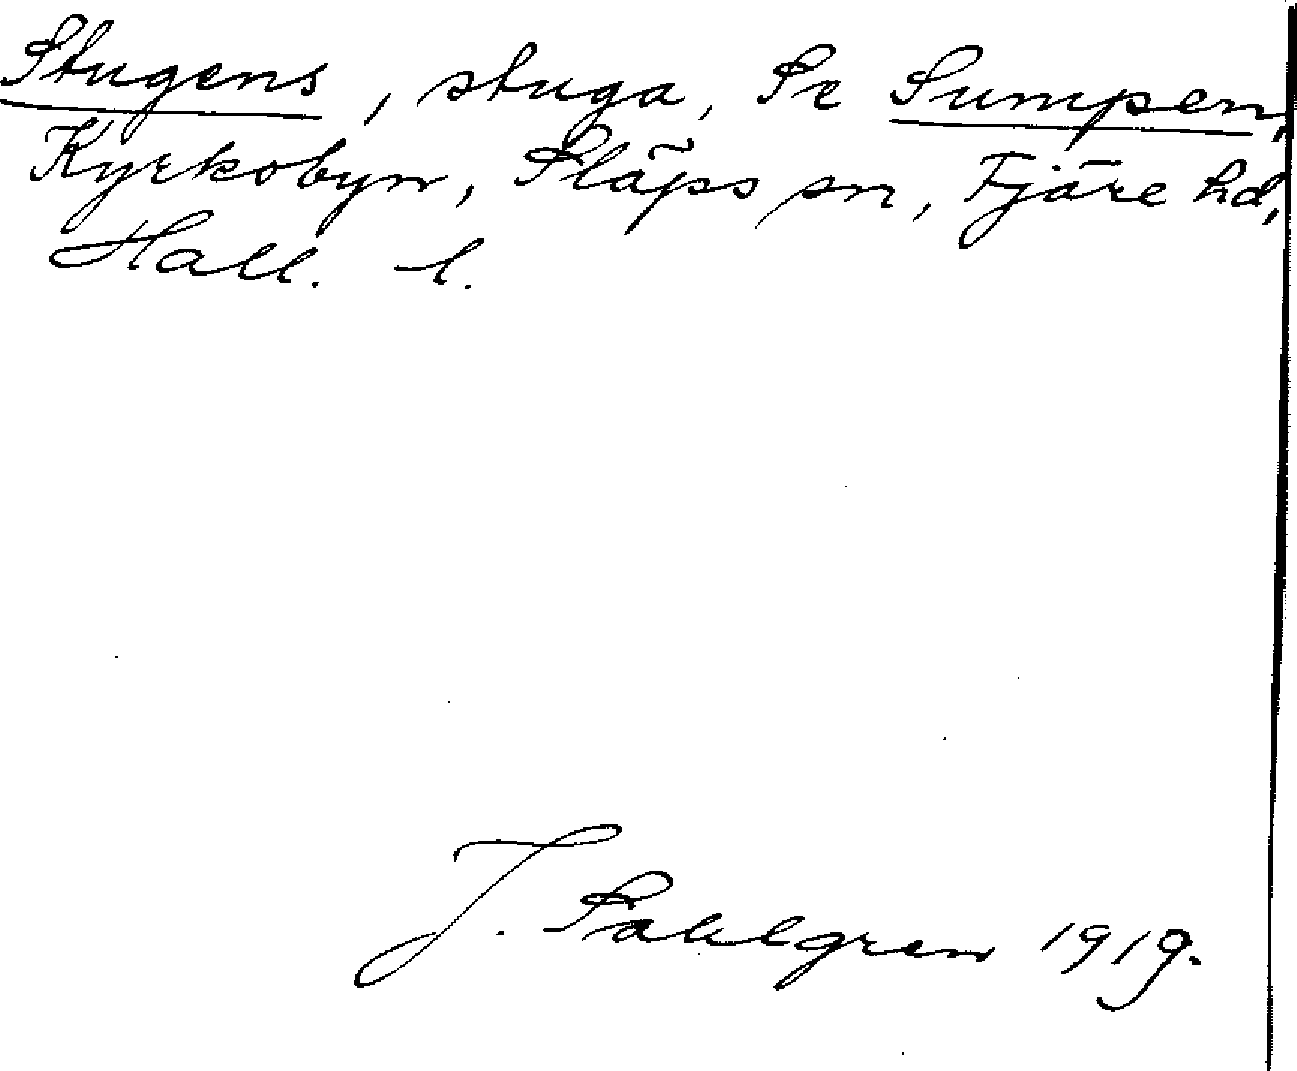 Stugens, stuga, Se Sumpen,
Kyrkobyn, Släps sn, Fjäre hd,
Hall. l.
J. Sahlgren 1919.